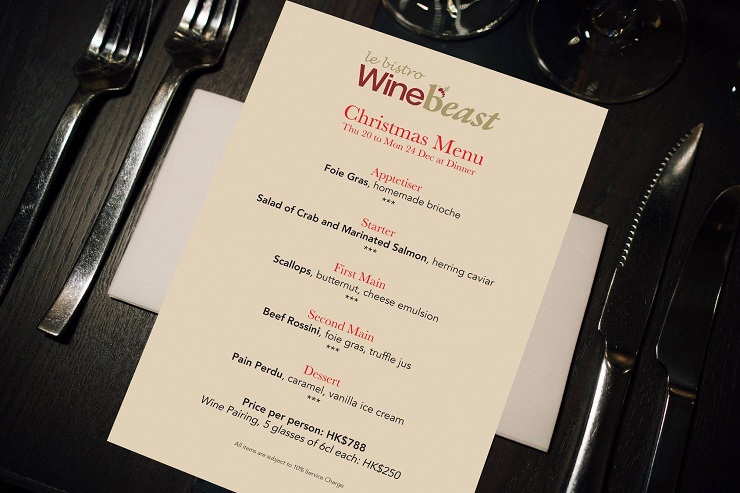 le bistro
Winebeast
Christmas Menu
Thu 20 to Mon 24 Dec at Dinner
Apptetiser
Foie Gras, homemade brioche
***
Starter
Salad of Crab and Marinated Salmon, herring caviar
***
First Main
Scallops, butternut, cheese emulsion
***
Second Main
Beef Rossini, foie gras, truffle jus
***
Dessert
Pain Perdu, caramel, vanilla ice cream
***
Price per person: HK$788
Wine Pairing, 5 glasses of 6cl each: HK$250
All items are subject to 10% Service Charge